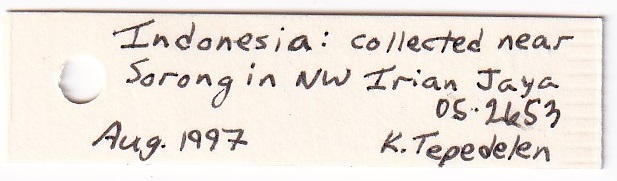 Indonesia: collected near
Sorong in NW Irian Jaya
OS·2653
Aug. 1997 K. Tepedelen